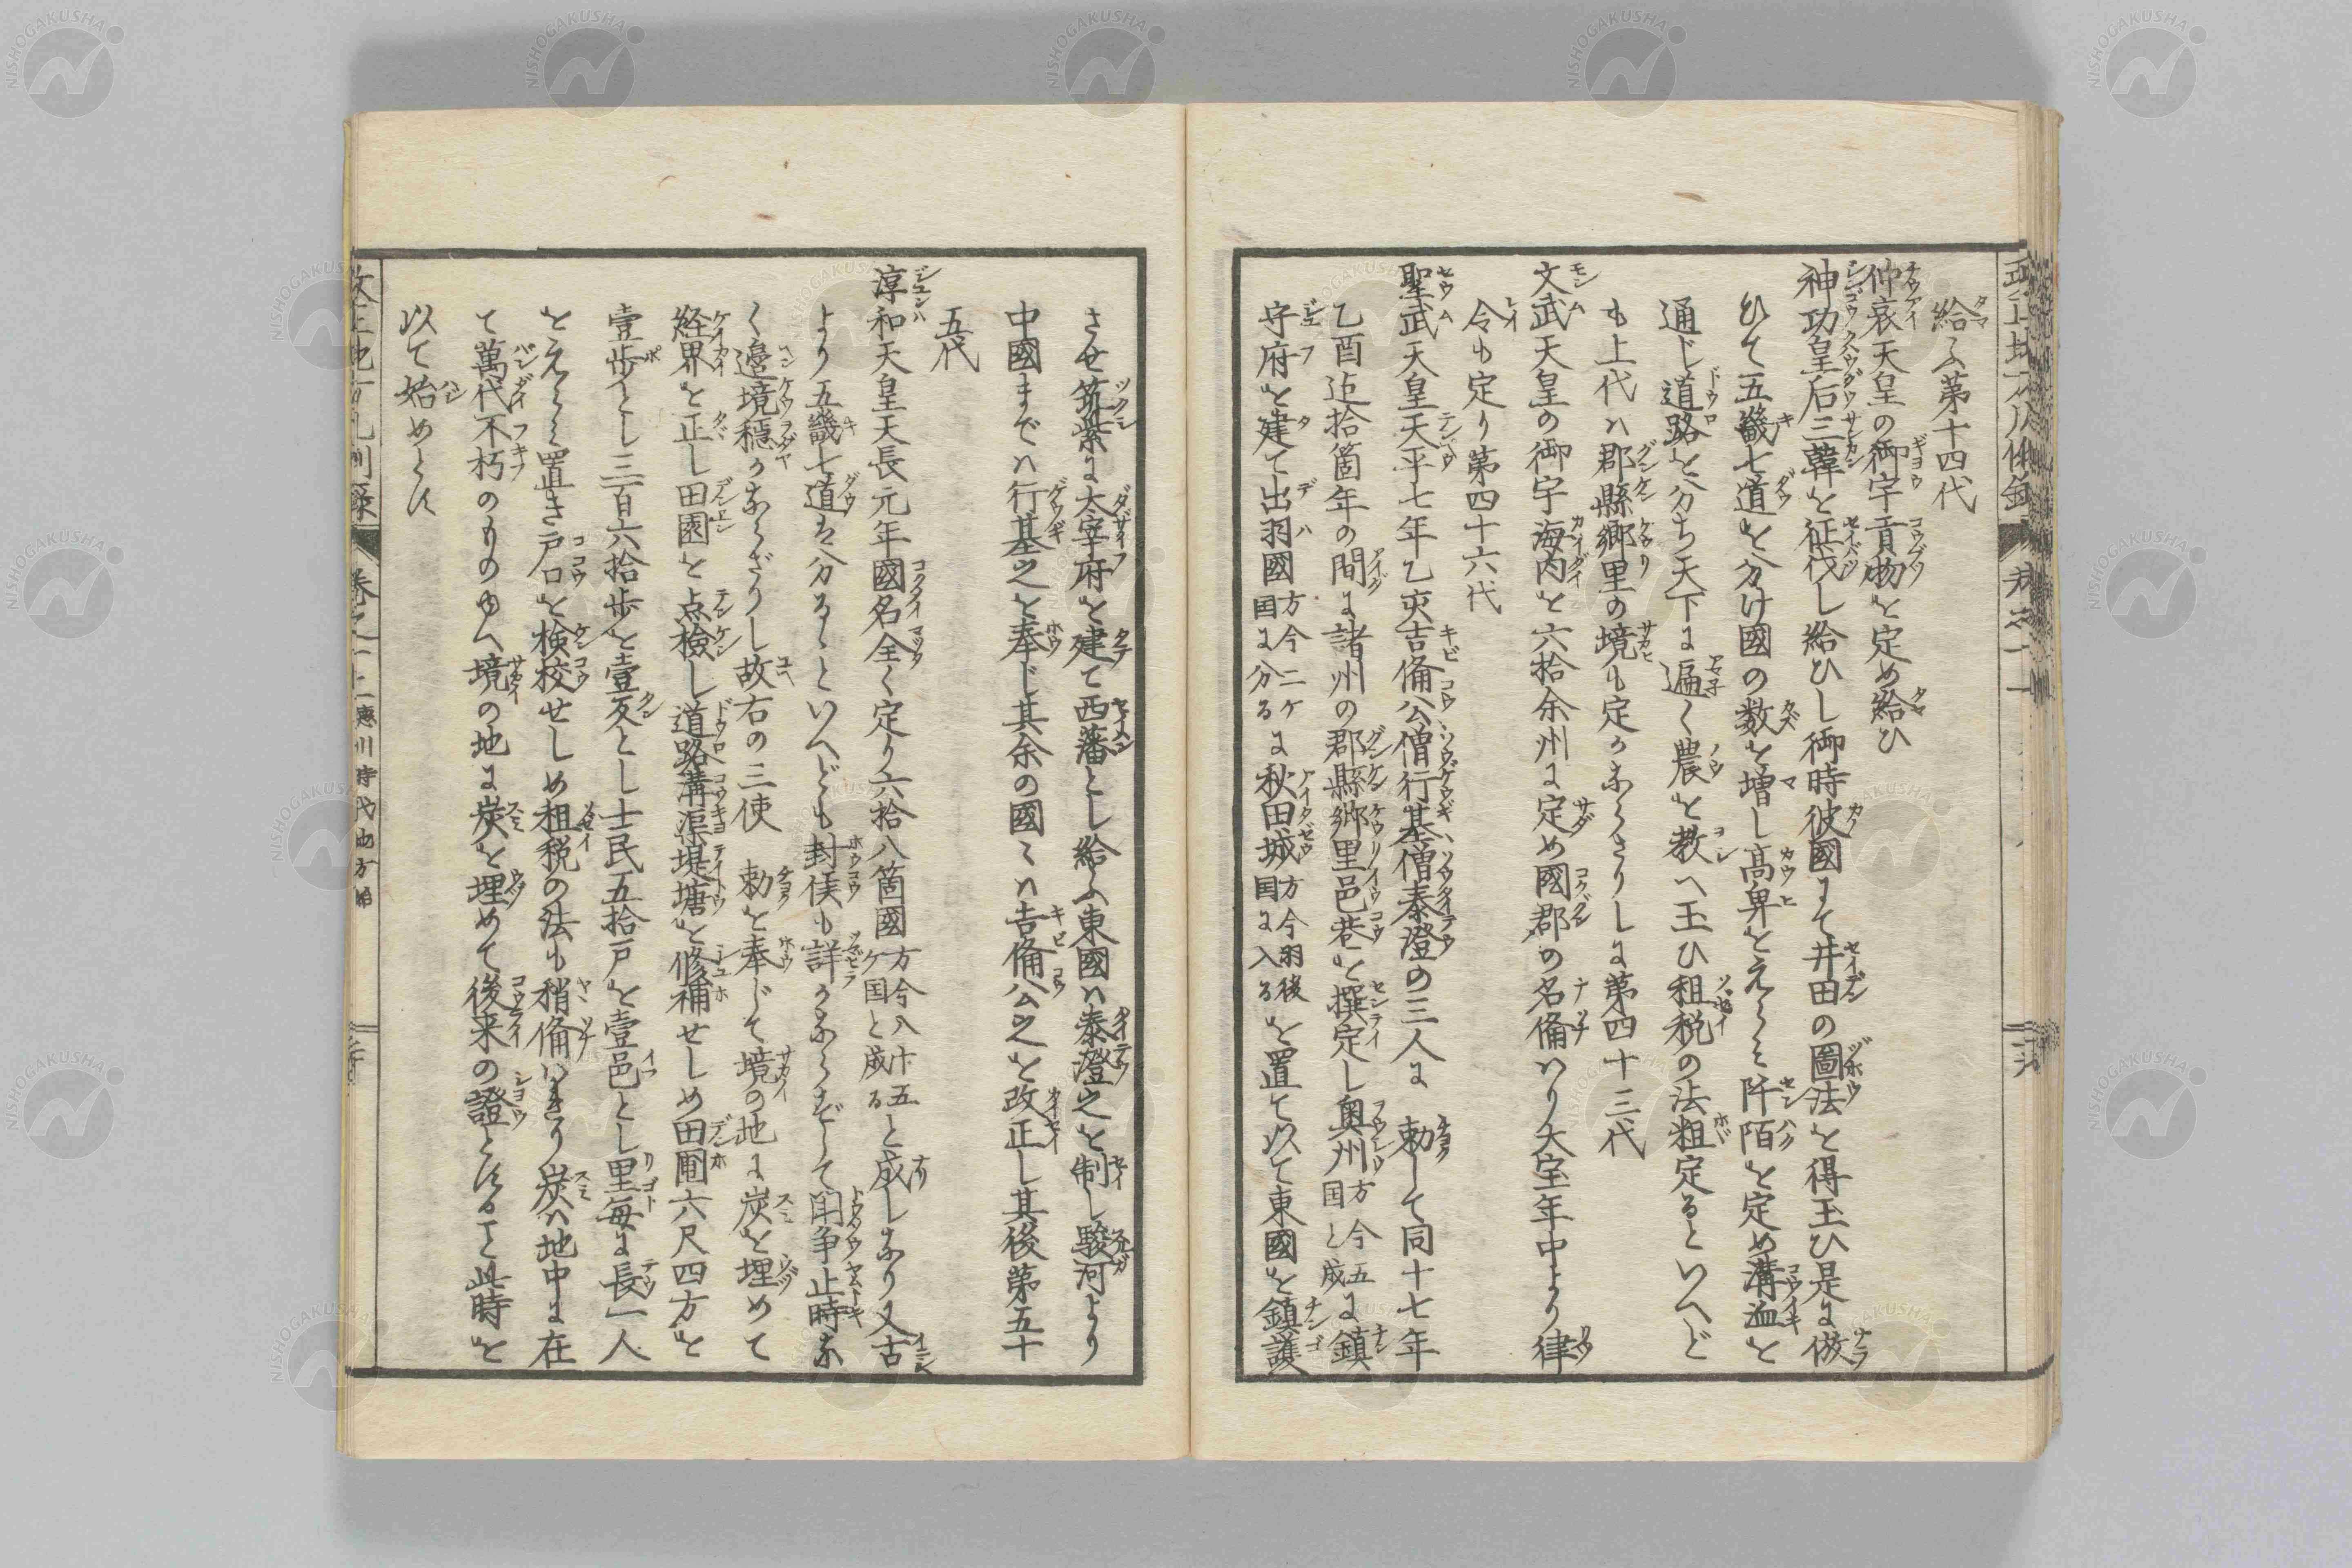 給ふ第十四代
仲哀天皇の御宇貢物を定め給ひ
神功皇后三韓を征伐し給ひし御時彼國にて井田の圖法を得玉ひ是に倣
ひて五畿七道を分け國の数を増し高卑をえらミ阡陌を定め溝洫を
通じ道路を分ち天下に遍く農を教へ玉ひ租税の法粗定るといへど
も上代ハ郡縣郷里の境も定かならさりしに第四十三代
文武天皇の御宇海内を六拾余州に定め國郡の名備ハり大宝年中より律
令も定り第四十六代
聖武天皇天平七年乙亥吉備公僧行基僧泰澄の三人に 勅して同十七年
乙酉迠拾箇年の間に諸州の郡縣郷里邑巷を撰定し奥州方今五国と成に鎮
守府を建て出羽國方今二ケ国に分るに秋田城方今羽後国に入るを置て以て東國を鎮護
させ筑紫に太宰府を建て西藩とし給ふ東國ハ泰澄之を制し駿河より
中國までハ行基之を奉じ其余の國ミハ吉備公之を改正し其後第五十
五代
淳和天皇天長元年國名全く定り六拾八箇國方今八十五ケ国と成ると成しなり又古
より五畿七道を分るゝといへども封侯も詳かならずして闘争止時な
く邊境穏かならざりし故右の三使 勅を奉じて境の地に炭を埋めて
経界を正し田園を点檢し道路溝渠堤塘を修補せしめ田圃六尺四方を
壹歩とし三百六拾歩を壹反とし士民五拾戸を壹邑とし里毎に長一人
をえらミ置き戸口を檢校せしめ租税の法も稍備ハれり炭ハ地中に在
て萬代不朽のものゆへ境の地に炭を埋めて後来の證とする此時を
以て始めとす
巻之一
徳川時代地方